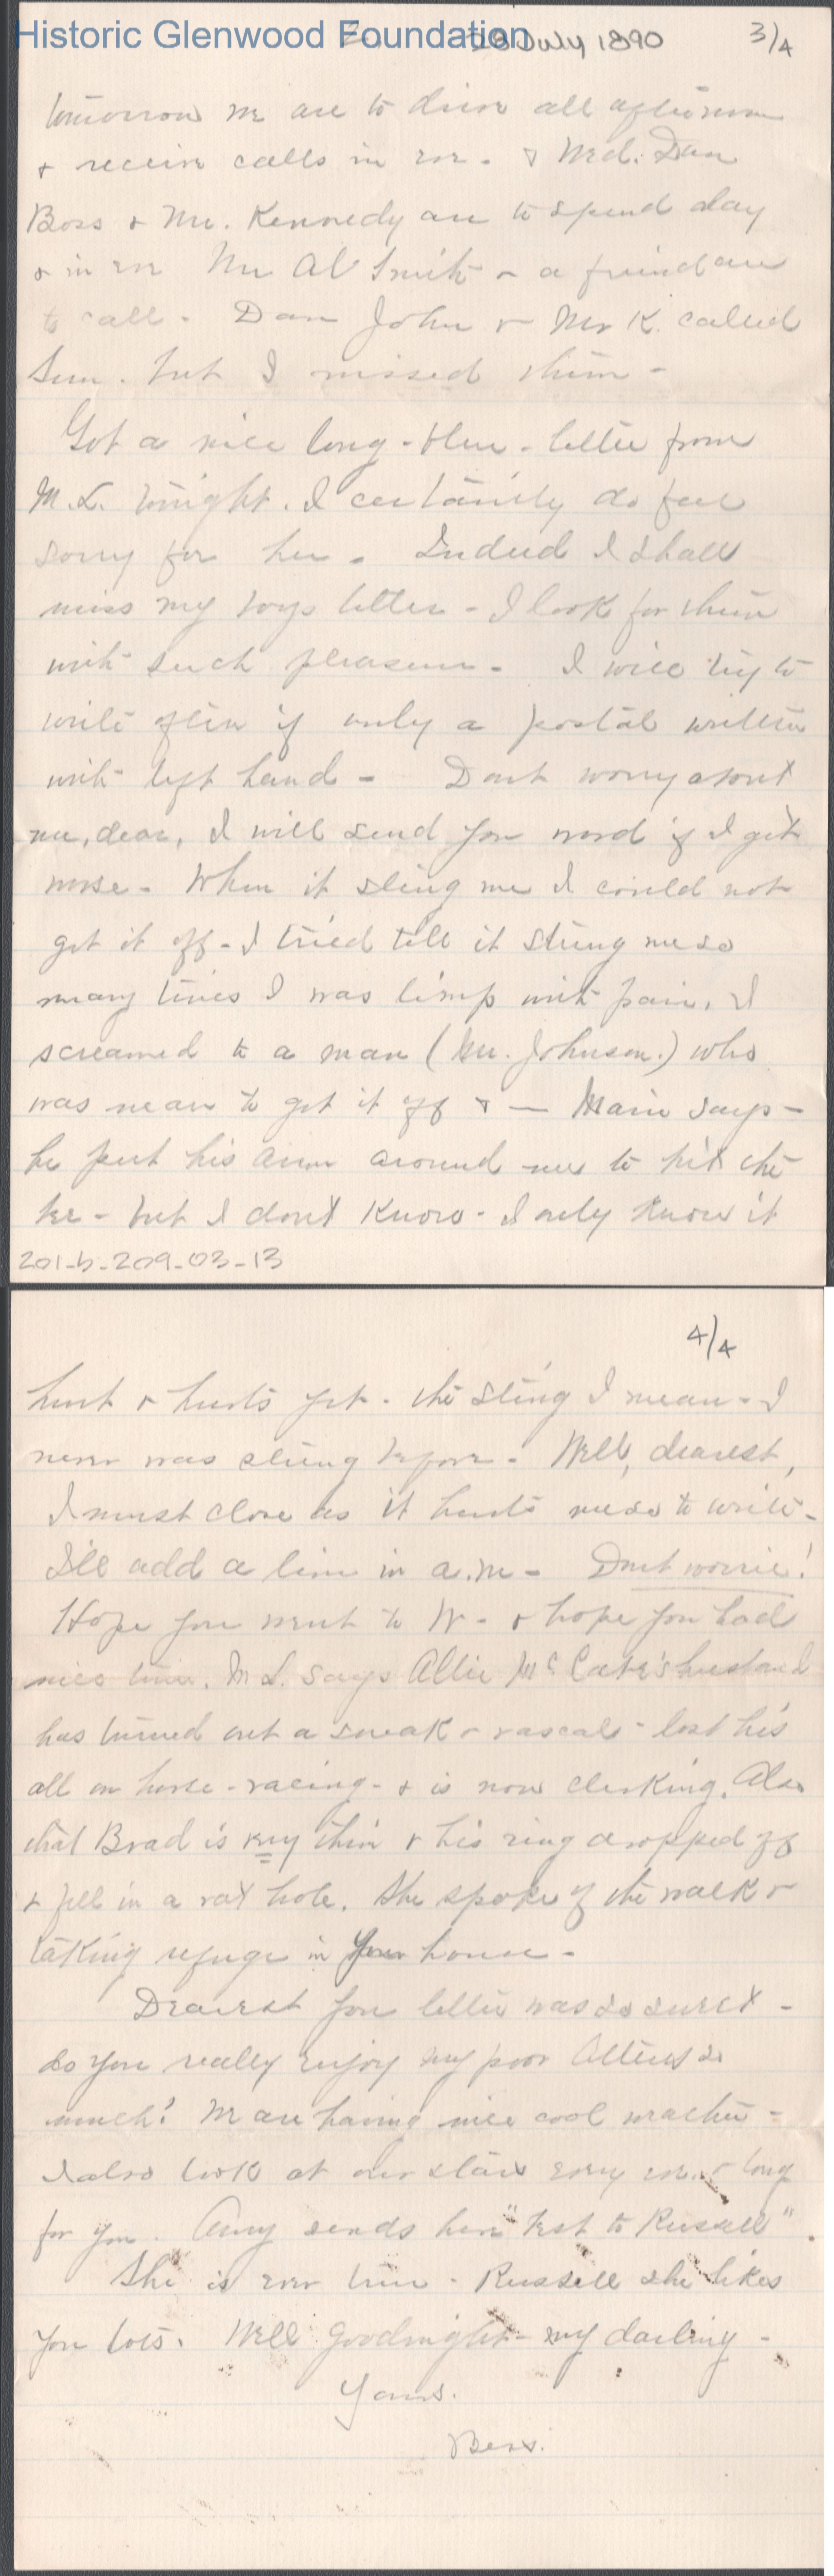 Historic Glenwood Foundation
28 July 1890
3/4
tomorrow we are to drive all afternoon
+ receive calls in eve. + Wed. Dan
Boss + Mr. Kennedy are to spend day
+ in eve Mr Al Smith + a friend are
to call. Dan John + Mr K. called
Sun. but I missed them -
Got a nice long - blue - letter from
M.L. tonight. I certainly do feel
sorry for her. Indeed I shall
miss my boys letters - I look for them
with such pleasure - I will try to
write often if only a postal written
with left hand - Dont worry about
me, dear, I will send you word if I get
worse - When it stung me I could not
get it off - I tried till it stung me so
many times I was limp with pain. I
screamed to a man (Mr. Johnson.) who
was near to get it off + — Main says -
he put his arm around me to hit the
bee - but I don't know - I only know it
201-b-209-03-13
4/4
hurt + hurts yet - the sting I mean - I
never was stung before. Well, dearest,
I must close as it hurts me so to write -
I'll add a line in a.m - Dont worrie!
Hope you went to W - + hope you had
nice time. M L. says Allie Mc Cabe's husband
has turned out a sneak + rascal - lost his
all on horse - racing - + is now clerking. Also
that Brad is very thin + his ring dropped off
+ fell in a rat hole. She spoke of the walk +
taking refuge in your house -
Dearest your letter was so sweet -
do you really enjoy my poor letters so
much! We are having nice cool weather -
I also look at our star every eve. + long
for you. Amy sends her "best to Russell".
She is ever true - Russell she likes
you lots. Well Goodnight - my darling -
Yours.
Bess.